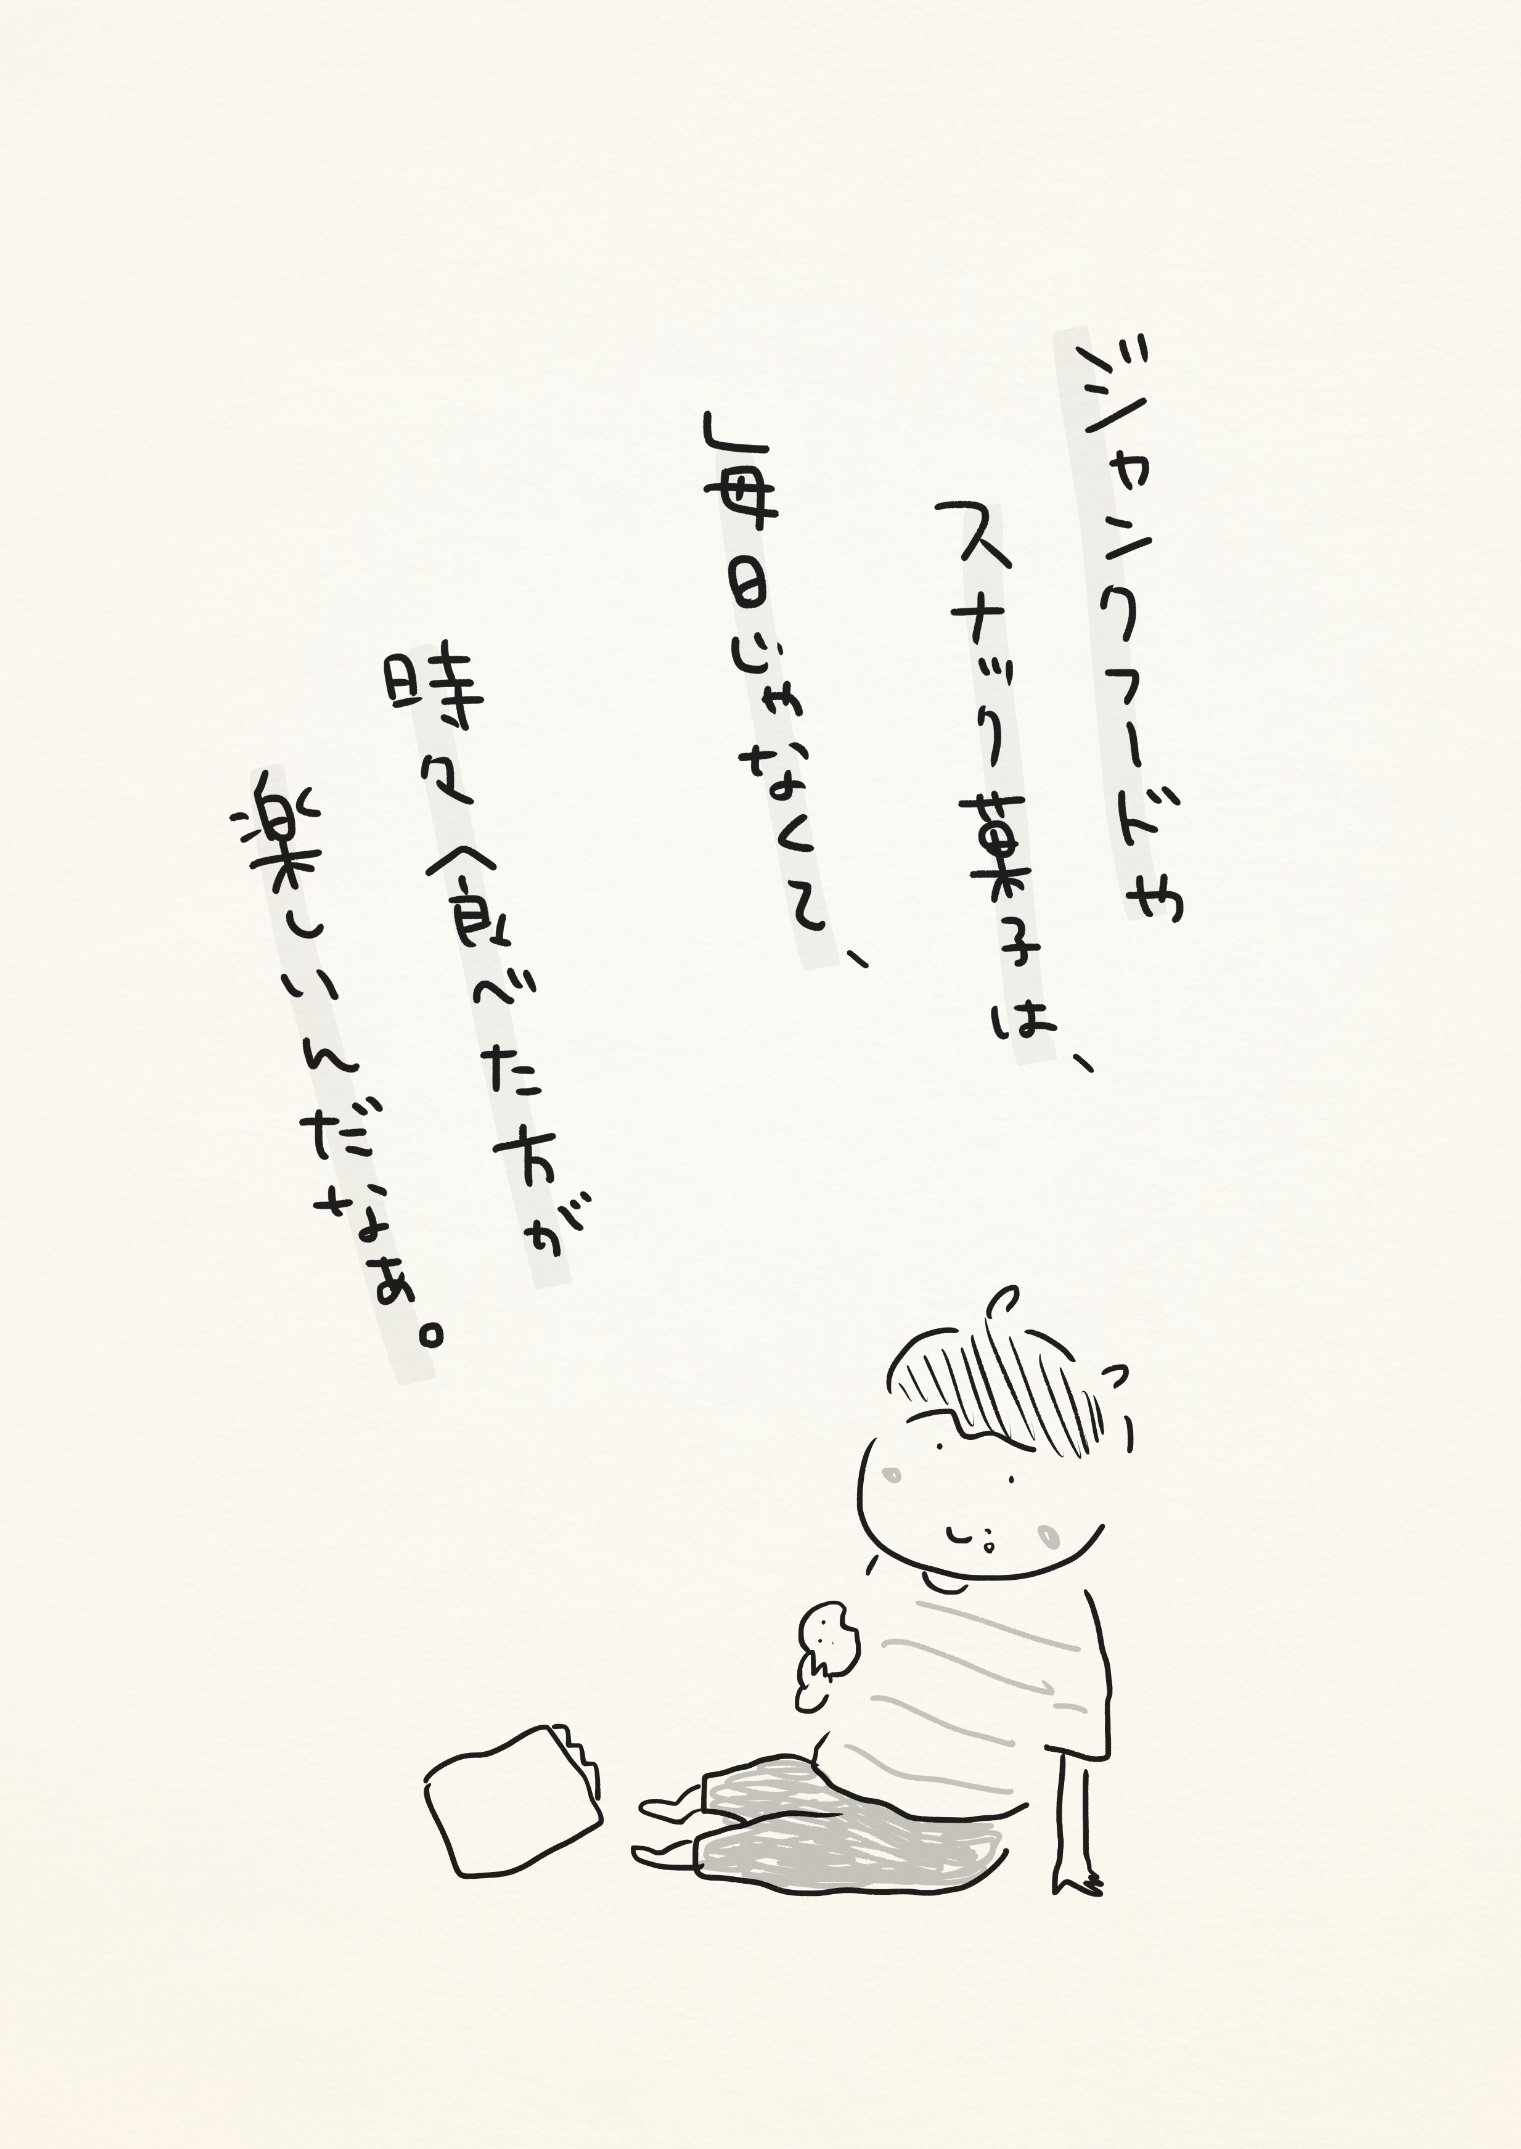 ジャンクフードや
スナック菓子は、
毎日じゃなくて、
時々食べた方が
楽しいんだなぁ。